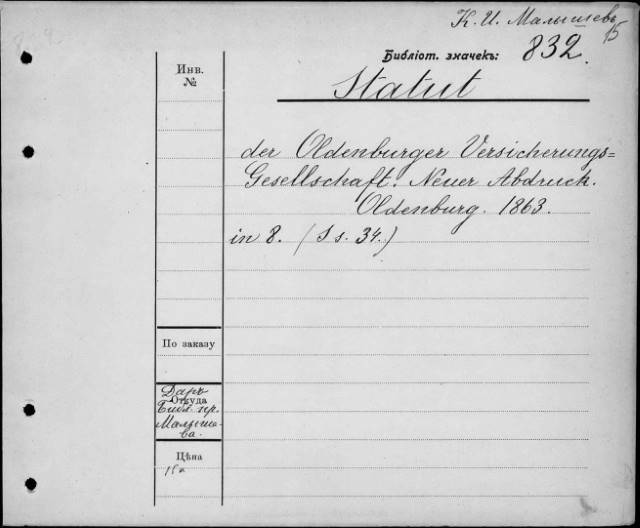 К. И. Малышевъ
15
Библіот. значекъ: 832.
Инв.
№
Statut
der Oldenburger Versicherungs=
Gesellschaft. Neuer Abdruck.
Oldenburg. 1863.
in 8. (S s. 34.)
По заказу
Даръ
Откуда
Библ. пр.
Малыше-
ва.
Цѣна